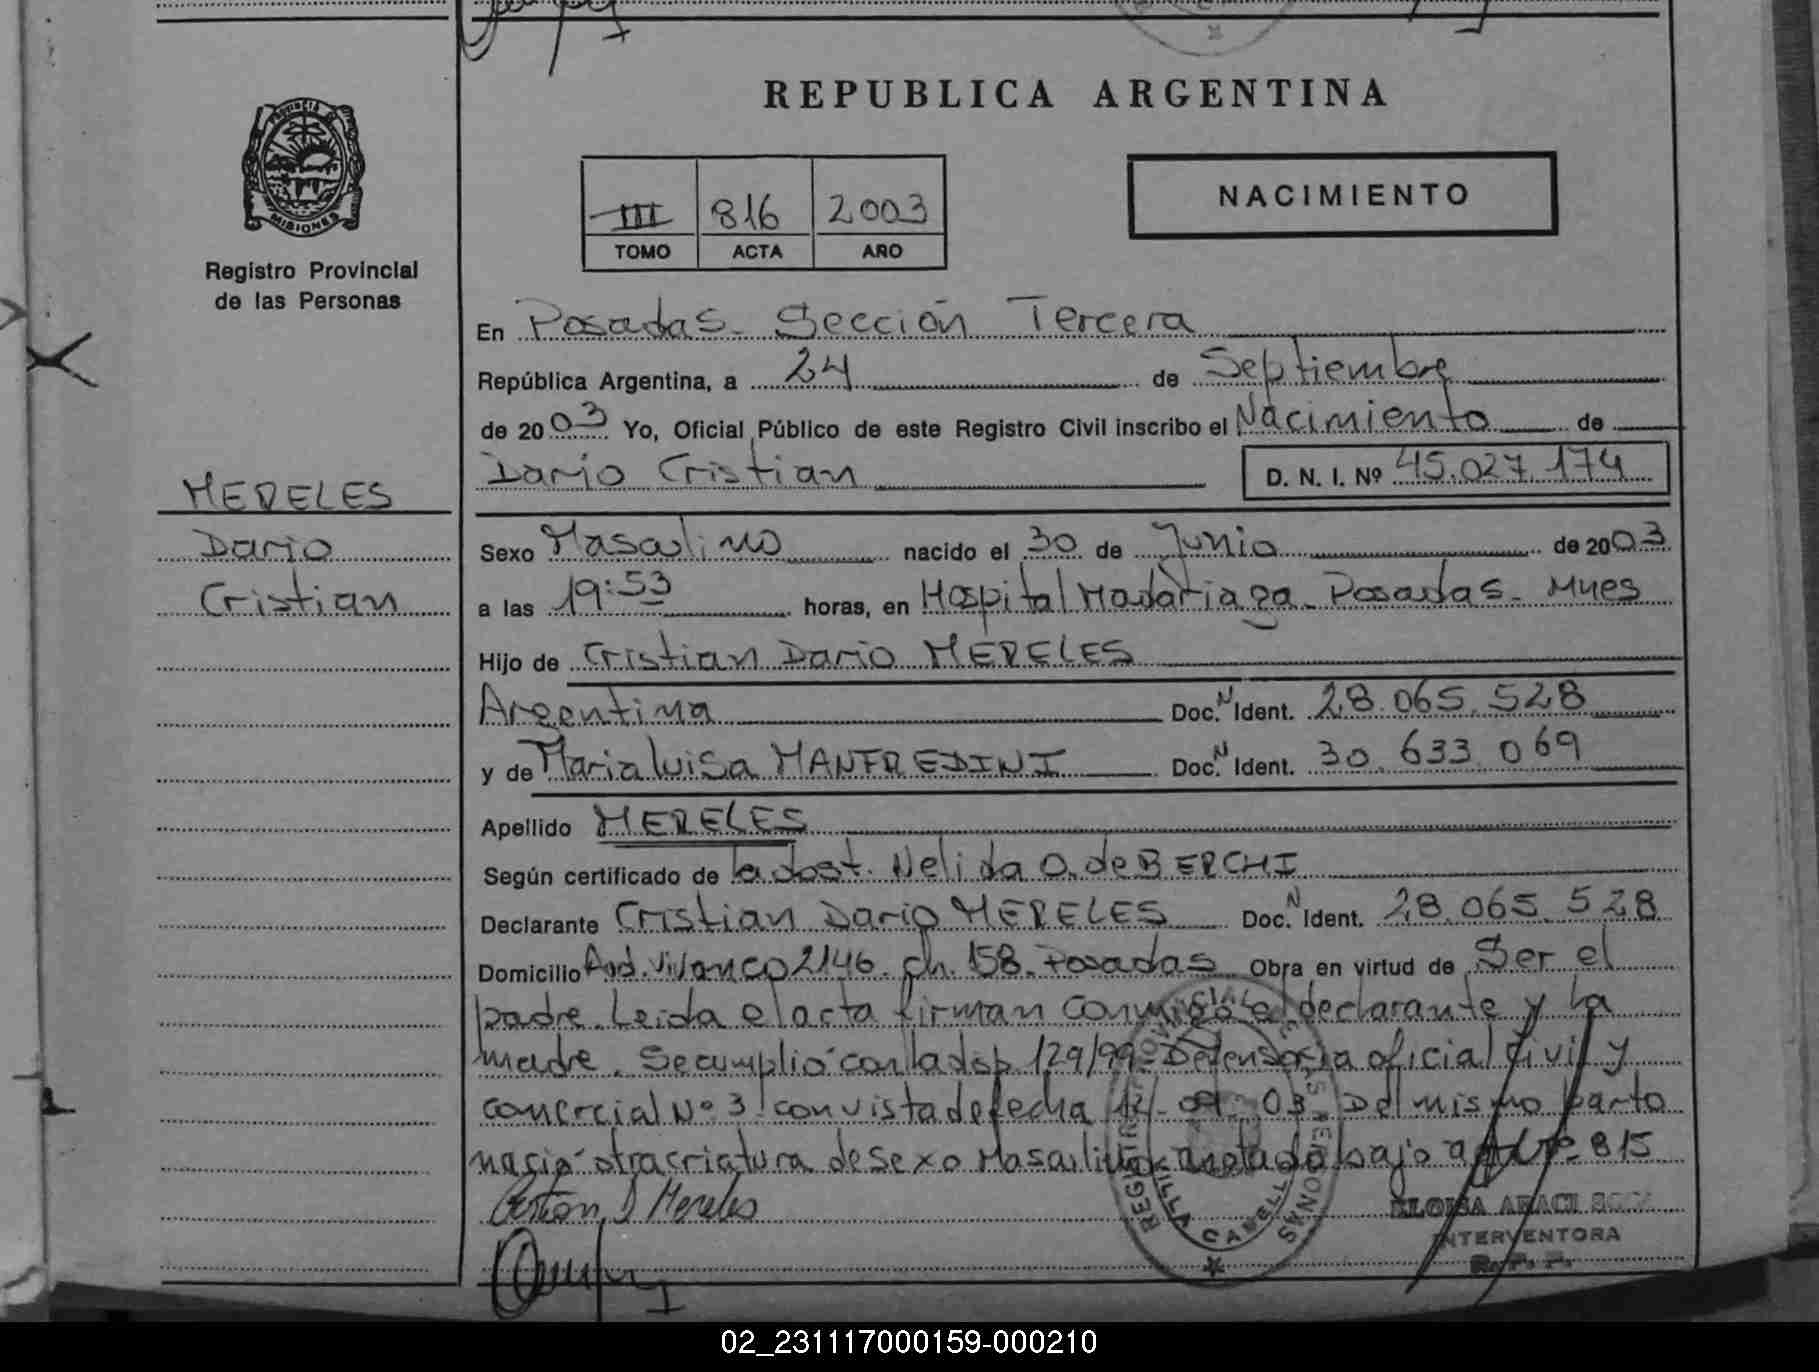 REPUBLICA ARGENTINA
PROVINCIA DE
MISIONES
Registro Provincial
de las Personas
III 816 2003
TOMO ACTA AÑO
NACIMIENTO
En Posadas. Sección Tercera
República Argentina, a 24 de Septiembre
de 2003 Yo, Oficial Público de este Registro Civil inscribo el Nacimiento de
Dario Cristian D. N. I. Nº 45.027.174
MERELES
Dario
Cristian
Sexo Masculino nacido el 30 de Junio de 2003
a las 19:53 horas, en Hospital Madariaga. Posadas. Mnes
Hijo de Cristian Dario MERELES
Argentina Doc. N Ident. 28.065.528
y de Maria Luisa MANFREDINI Doc. N Ident. 30.633.069
Apellido MERELES
Según certificado de la obst. Nelida O. de BERCHI
Declarante Cristian Dario MERELES Doc. N Ident. 28.065.528
Domicilio Avd. Vivanco 2146. ch. 158. Posadas Obra en virtud de Ser el
padre. Leida el acta firman conmigo el declarante y la
madre. Se cumplió con la disp. 129/99. Defensoria oficial Civil y
comercial Nº 3 con vista de fecha 03. Del mismo parto
nació otra criatura de Sexo Masculino anotado bajo acta Nº 815
Cristian D Mereles
VILLA CABELLO
MISIONES
INTERVENTORA
R. P. P.
02_231117000159-000210